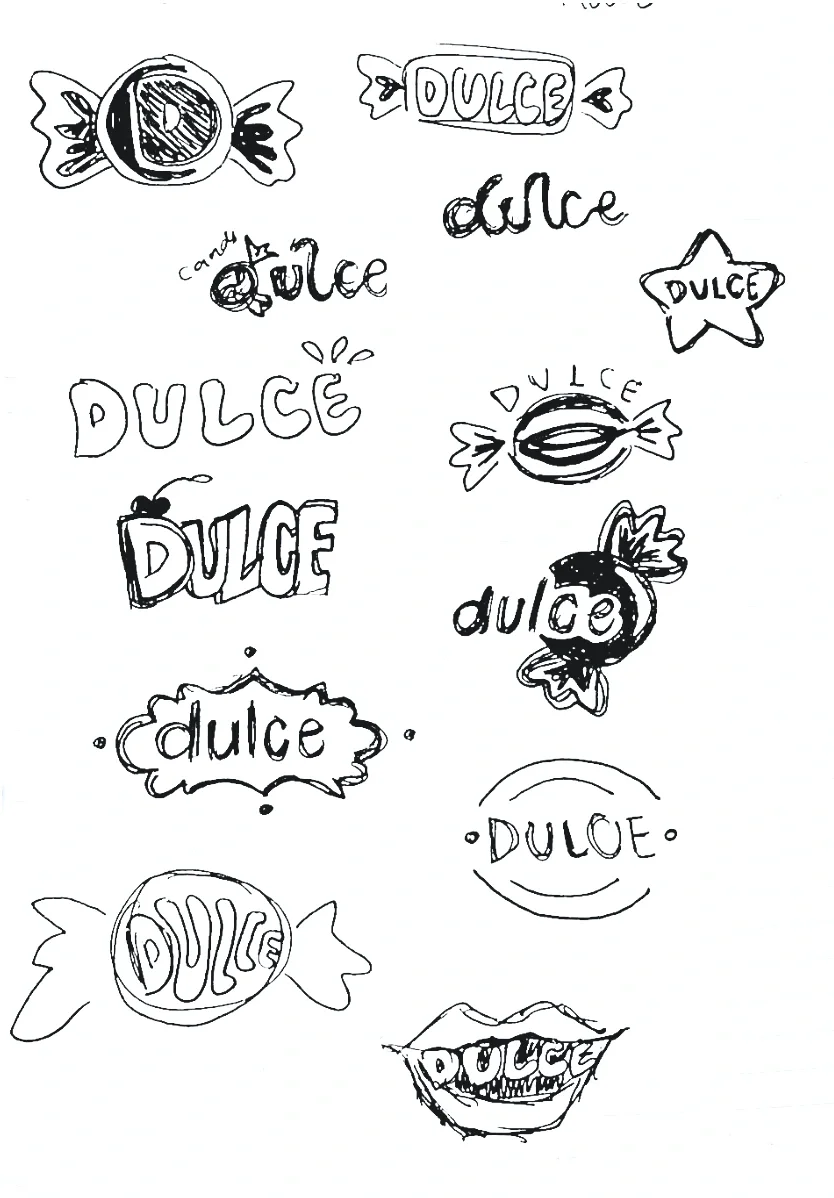 D
DULCE
dulce
candy
dulce
DULCE
DULCE
DULCE
DULCE
dulce
dulce
DULCE
DULCE
DULCE